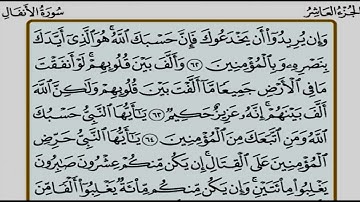 الجزء العاشر سورة الأنفال
وَإِن يُرِيدُوٓا۟ أَن يَخْدَعُوكَ فَإِنَّ حَسْبَكَ ٱللَّهُ ۚ هُوَ ٱلَّذِىٓ أَيَّدَكَ
بِنَصْرِهِۦ وَبِٱلْمُؤْمِنِينَ ٦٢ وَأَلَّفَ بَيْنَ قُلُوبِهِمْ ۚ لَوْ أَنفَقْتَ
مَا فِى ٱلْأَرْضِ جَمِيعًا مَّآ أَلَّفْتَ بَيْنَ قُلُوبِهِمْ وَلَٰكِنَّ ٱللَّهَ
أَلَّفَ بَيْنَهُمْ ۚ إِنَّهُۥ عَزِيزٌ حَكِيمٌ ٦٣ يَٰٓأَيُّهَا ٱلنَّبِىُّ حَسْبُكَ
ٱللَّهُ وَمَنِ ٱتَّبَعَكَ مِنَ ٱلْمُؤْمِنِينَ ٦٤ يَٰٓأَيُّهَا ٱلنَّبِىُّ حَرِّضِ
ٱلْمُؤْمِنِينَ عَلَى ٱلْقِتَالِ ۚ إِن يَكُن مِّنكُمْ عِشْرُونَ صَٰبِرُونَ
يَغْلِبُوا۟ مِا۟ئَتَيْنِ ۚ وَإِن يَكُن مِّنكُم مِّا۟ئَةٌ يَغْلِبُوٓا۟ أَلْفًا مِّنَ